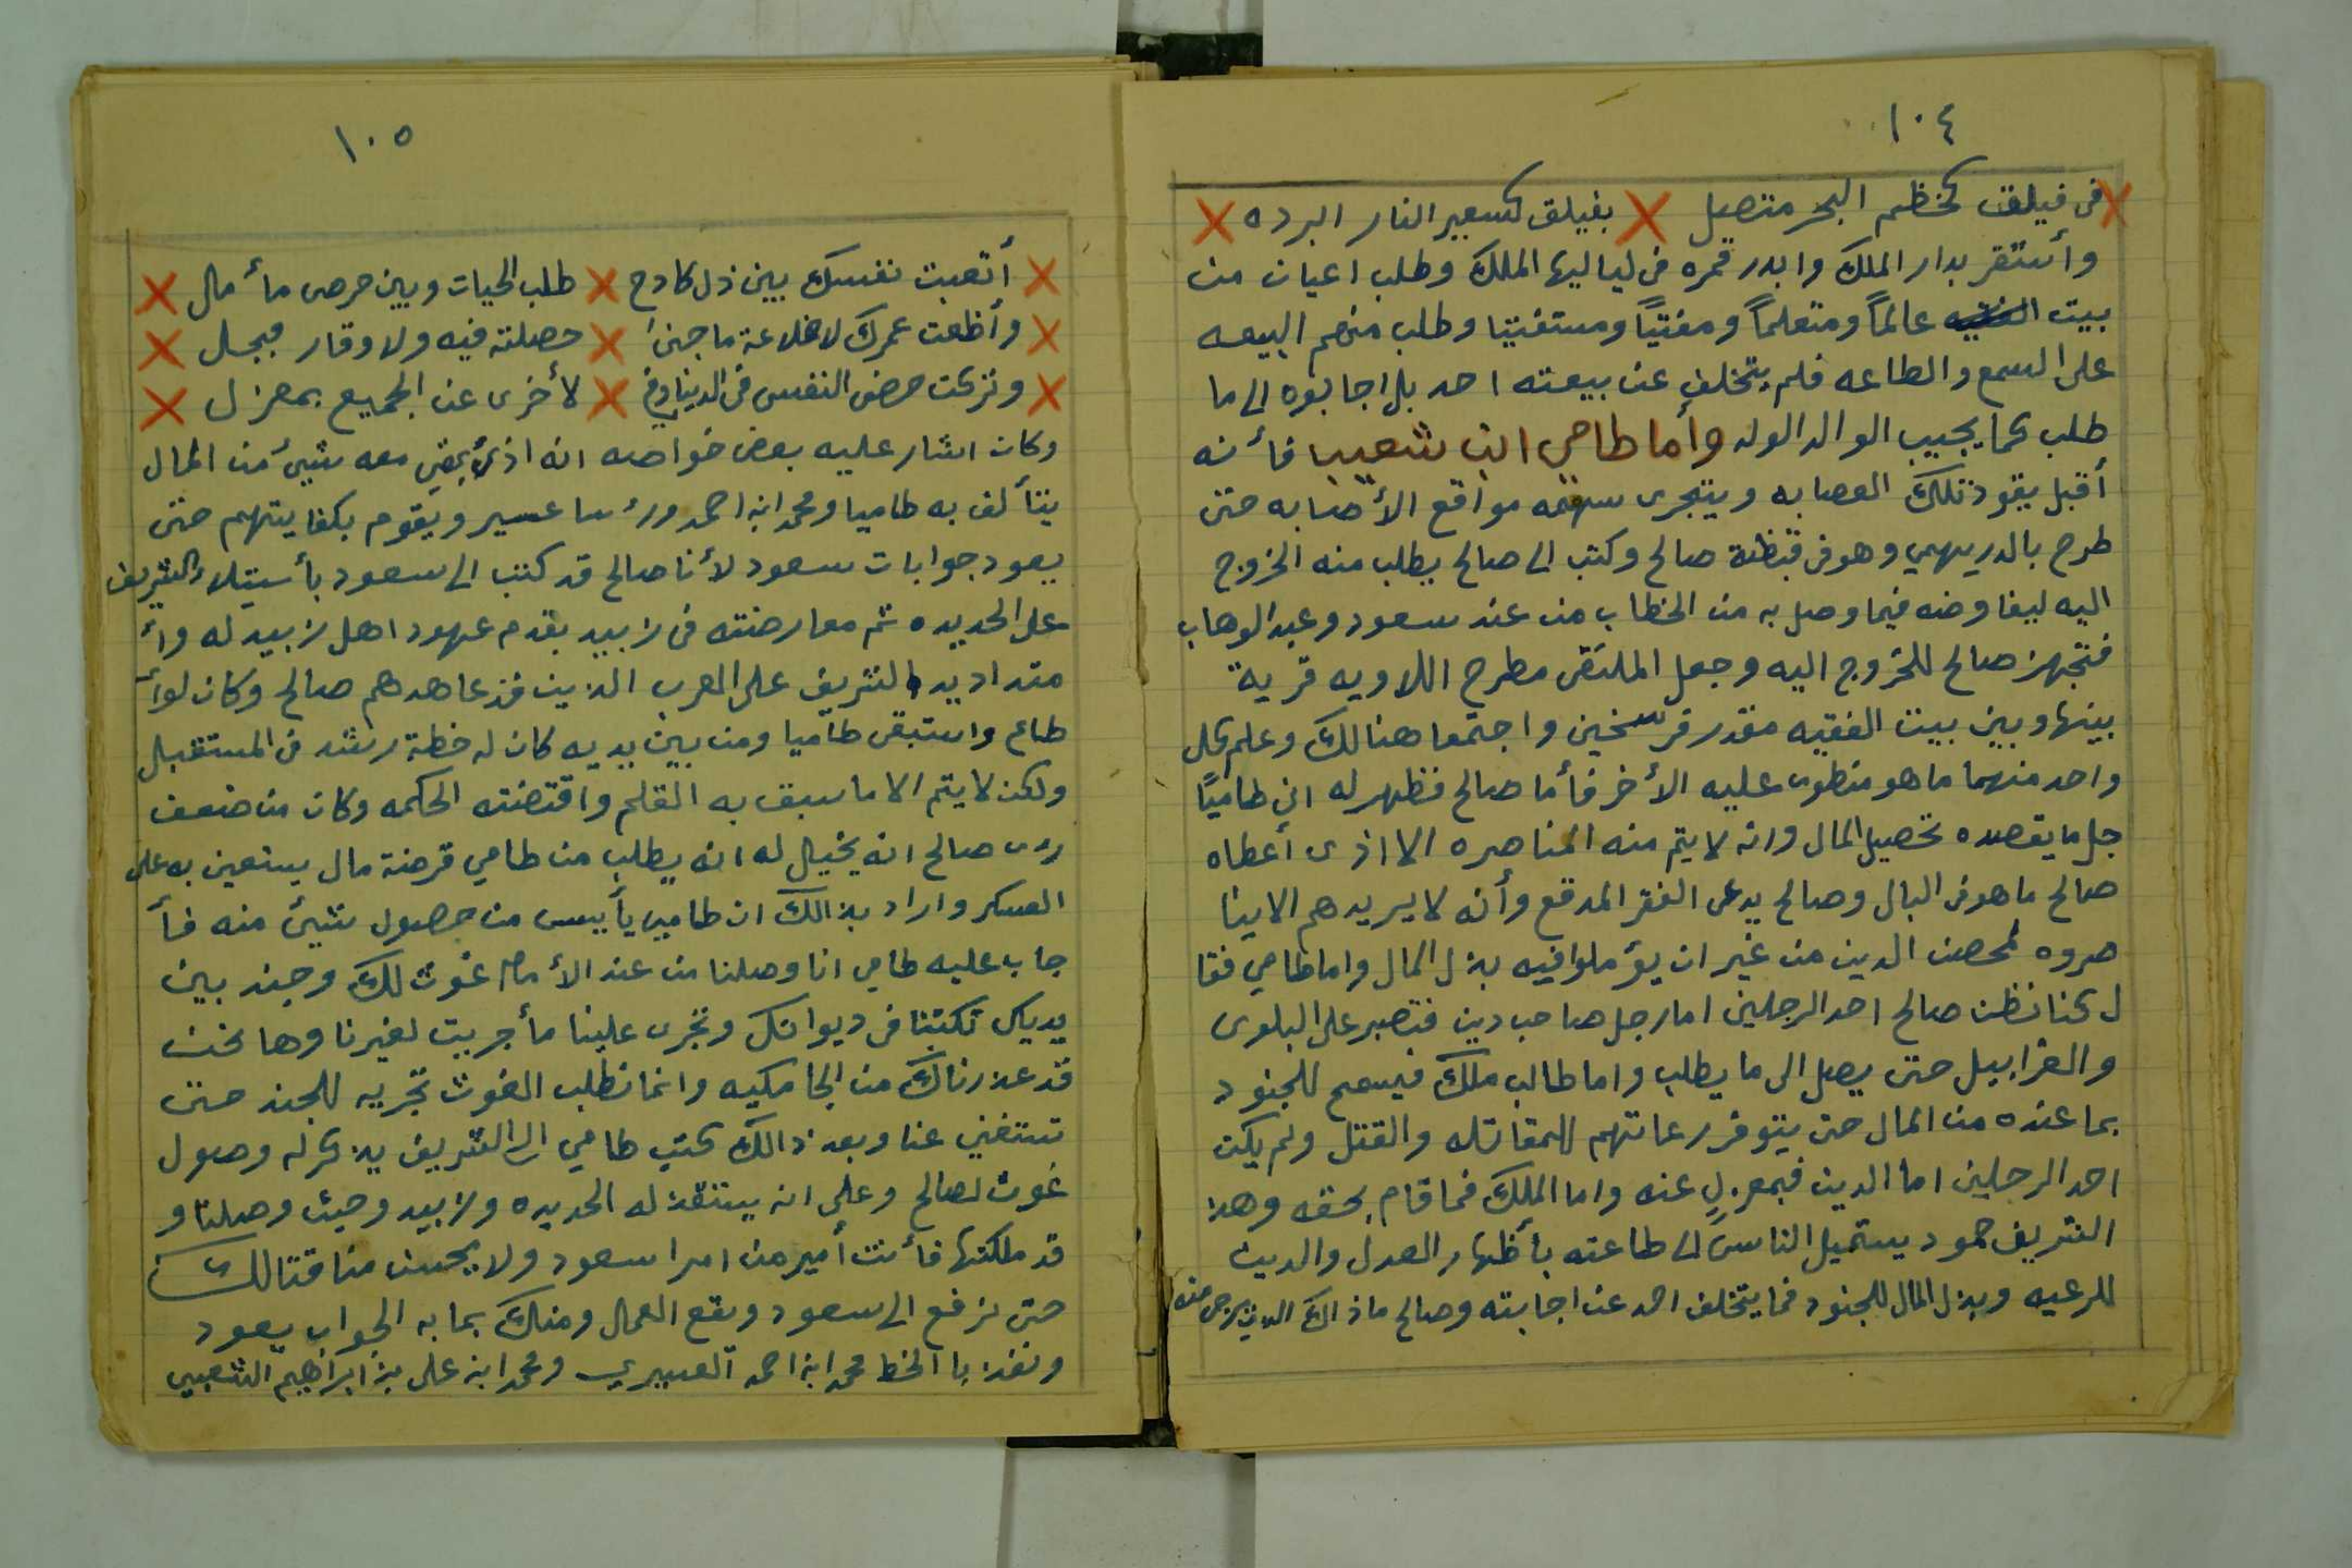 ١٠٤
في فيلق كخظم البحر متصيل بفيلق لسعير النار البرده
وأستقر بدار الملك وابدر قمره في لياليها الملك وطلب اعيان من
بيت الفقيه عالماً ومتعلماً ومفتيًا ومستفتيا وطلب منهم البيعه
على السمع والطاعه فلم يتخلف عن بيعته احد بل اجابوه الى ما
طلب كما يجيب الوالد الولد وأما طامي ابن شعيب فأنه
أقبل يقود تلك العصابه ويتحرى سهمه مواقع الأصابه حتى
طرح بالدريهمي وهو في قبظة صالح وكتب الى صالح يطلب منه الخروج
اليه ليفاوضه فيما وصل به من الخطاب من عند سعود وعبد الوهاب
فتجهز صالح للخروج اليه وجعل الملتقى مطرح اللاويه قرية
بينها وبين بيت الفقيه مقدر فرسخين واجتمعا هنالك وعلم كل
واحد منهما ما هو منطوى عليه الأخر فأما صالح فظهر له ان طاميًا
جل ما يقصده تحصيل المال وانه لا يتم منه المناصره الا اذى أعطاه
صالح ما هو في البال وصالح يدعى الفقر المدقع وأنه لا يريدهم الا ينا
صروه لمحصن الدين من غير ان يؤملوا فيه بذل المال واما طامي فقا
ل كنا نظن صالح احد الرجلين اما رجل صاحب دين فتصبر على البلوى
والغرابيل حتى يصل الى ما يطلب واما طالب ملك فيسمح للجنود
بما عنده من المال حتى يتوفر رعاتهم للمقاتله والقتل ولم يكن
احد الرجلين اما الدين فبمعزل عنه واما الملك فما قام بحقه وهذ
الشريف حمود يستميل الناس الى طاعته بأظهار العدل والدين
للرعيه وبذل المال للجنود فما يتخلف احد عن اجابته وصالح ما ذالك الدين يرجى منه
١٠٥
أتعبت نفسك بين ذل كادح طلب الحيات وبين حرص مأمال
وأظعت عمرك لا خلاعة ماجنٍ حصلته فيه ولا وقار مبجل
وتركت حض النفس في الدنيا وفي لأخرى عن الجميع بمعزل
وكان اشار عليه بعض خواصه انه اذى بقي معه شيئ من المال
يتألف به طاميا ومحمد ابن احمد ورؤسا عسير ويقوم بكفايتهم حتى
يعود جوابات سعود لأنا صالح قد كتب الى سعود بأستيلاء الشريف
على الحديده ثم معارضته في زبيد بقدم عهود اهل زبيد له وأ
متداد يد الشريف على العرب الذين قد عاهدهم صالح وكان لوأ
طاع واستبقى طاميا ومن بين يديه كان له خطة رشد في المستقبل
ولكن لا يتم الا ما سبق به القلم واقتضته الحكمه وكان من ضعف
رى صالح انه يخيل له انه يطلب من طامي قرضة مال يستعين به على
العسكر واراد بذالك ان طامي يأييس من حصول شيئ منه فأ
جاب عليه طامي انا وصلنا من عند الأمام غوث لك وجند بين
يديك تكتبنا في ديوانك وتجرى علينا مأجريت لغيرنا وها نحن
قد عذرناك من الجامكيه وانما نطلب الغوث تجريه للجند حتى
تستغني عنا وبعد ذالك كتب طامي الى الشريف يذكر له وصول
غوث لصالح وعلى انه يستنقذ له الحديده وزبيد وحيث وصلنا و
قد ملكتها فأنت أمير من امرا سعود ولا يحسن منا قتالك
حتى نرفع الى سعود ويقع العمال ومنك بما به الجواب يعود
ونفذ با الخط محمد ابن احمد العسيري ومحمد ابن على بن ابراهيم الشعبي